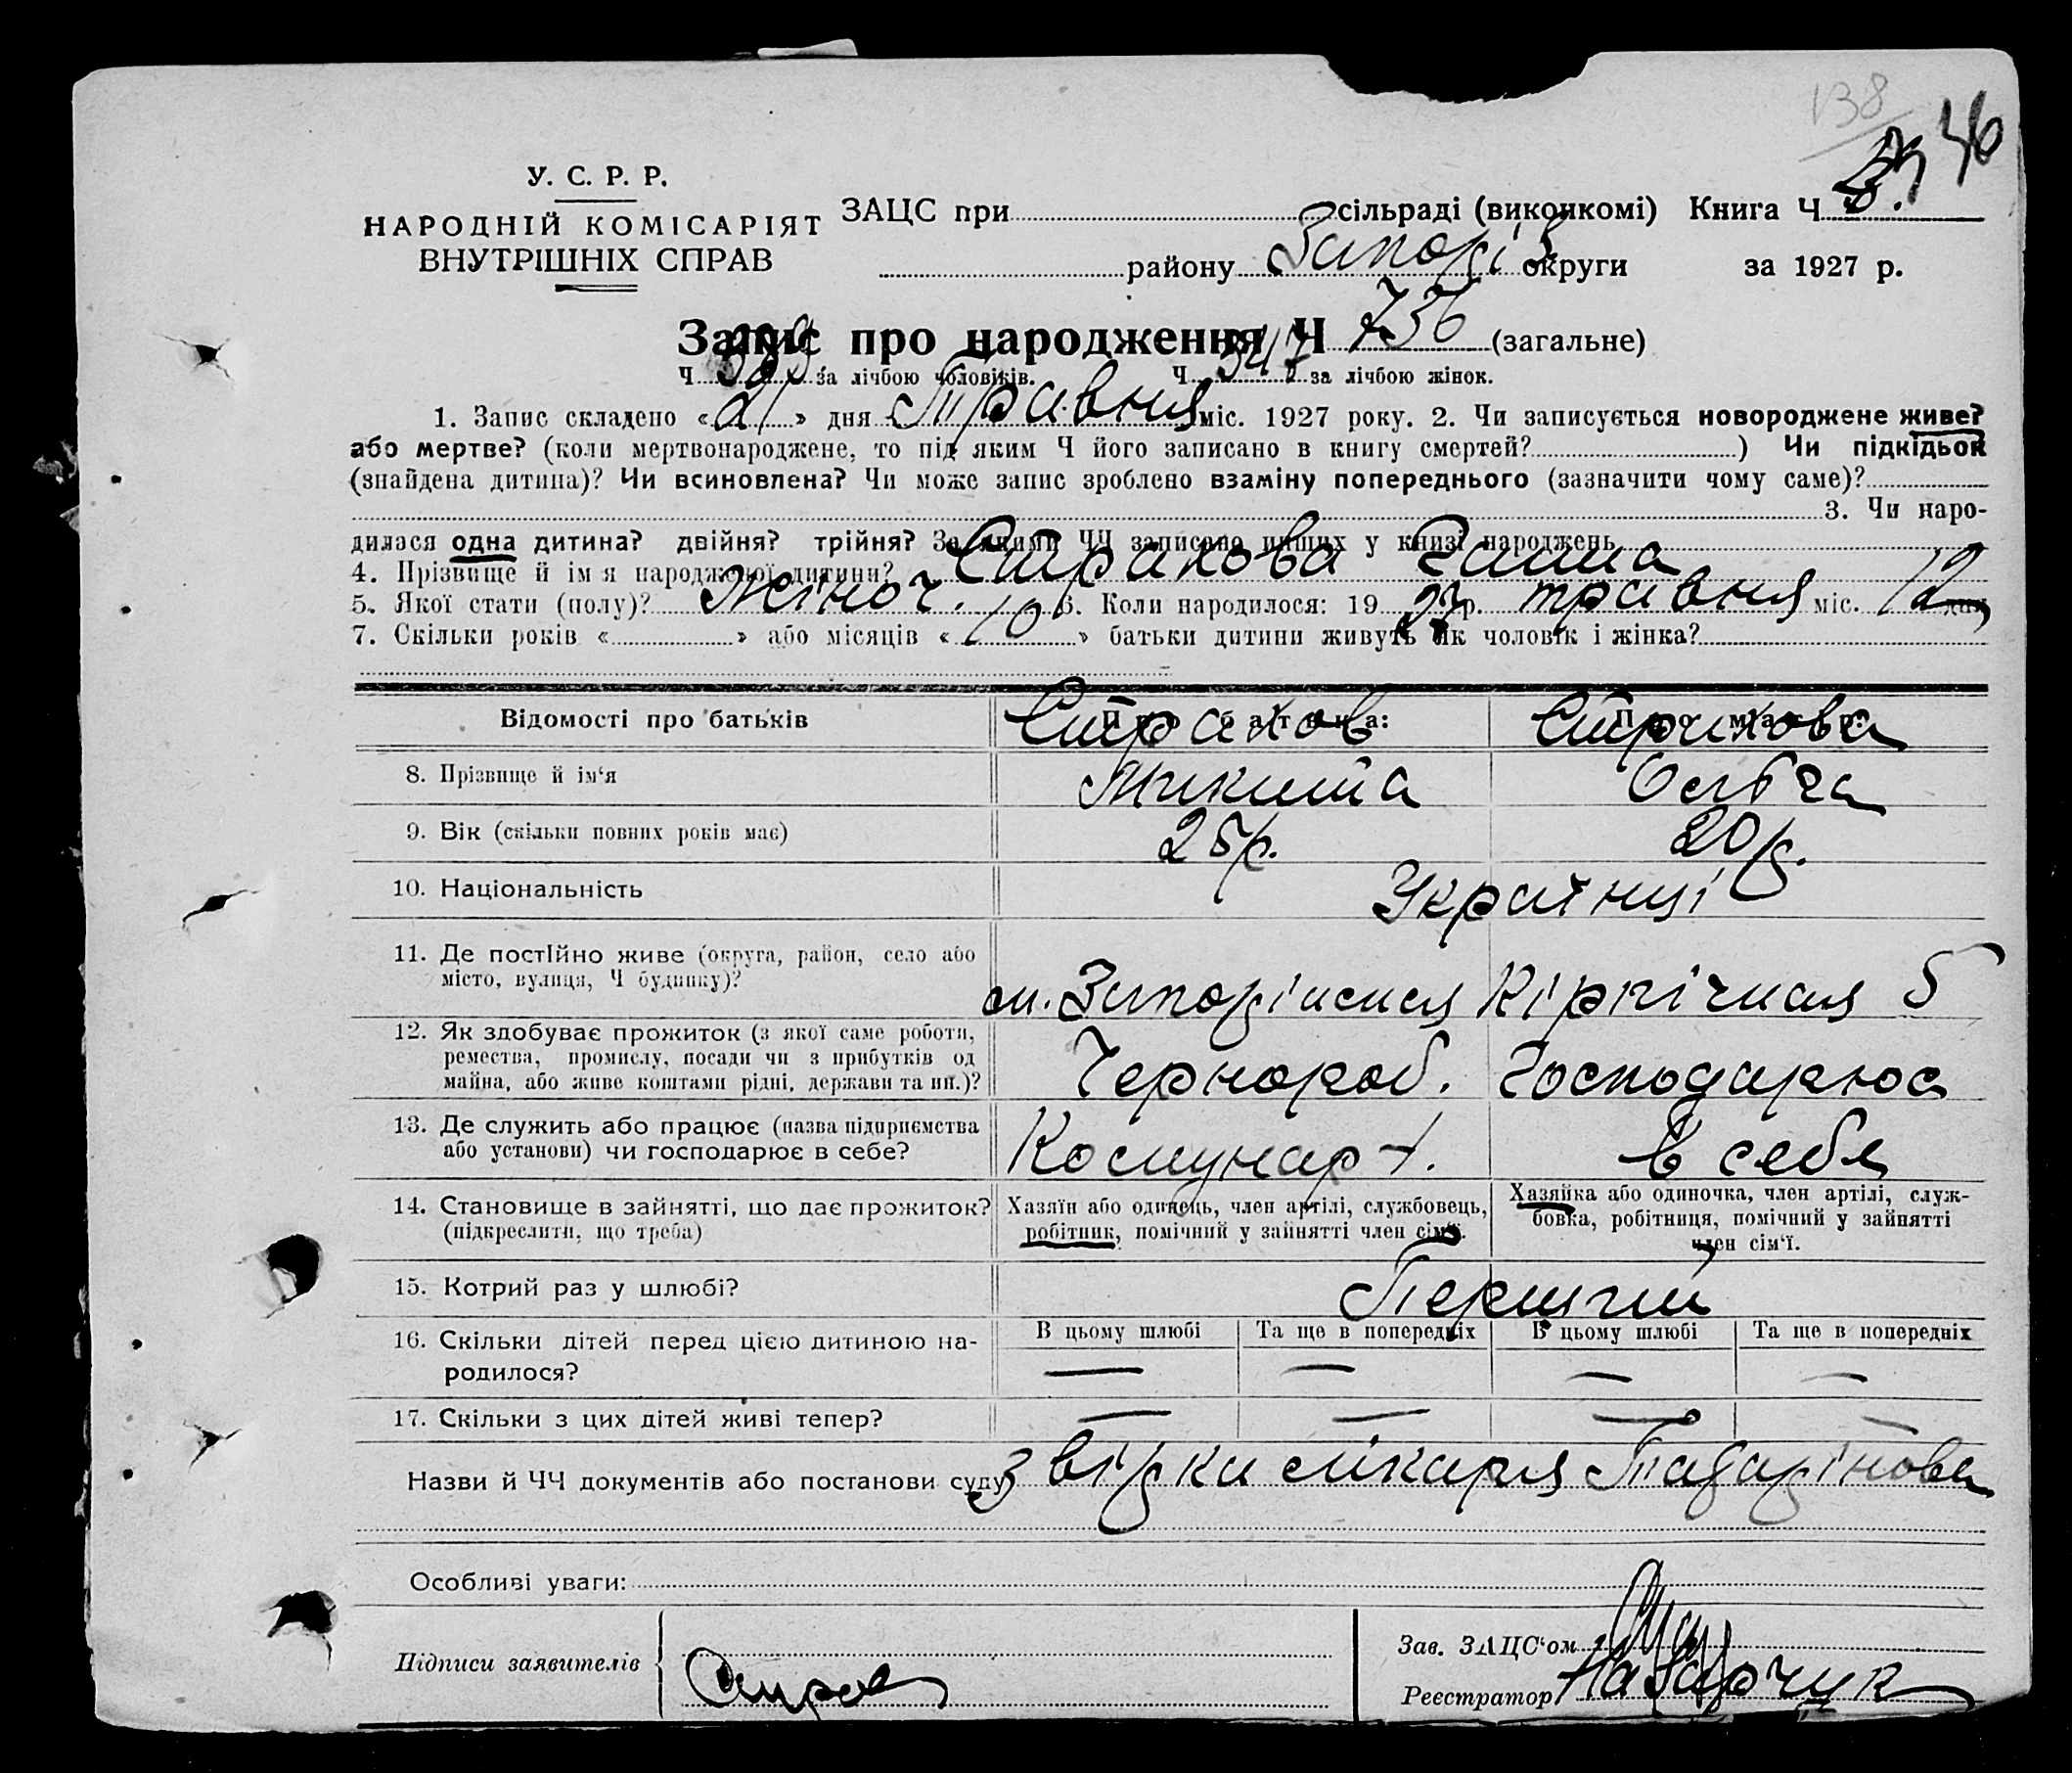 138
36
У. С. Р. Р.
НАРОДНІЙ КОМІСАРІЯТ
ВНУТРІШНІХ СПРАВ
ЗАЦС при сільраді (виконкомі) Книга Ч
району Запоріз округи за 1927 р.
Запис про народження Ч 736 (загальне)
Ч 389 за лічбою чоловіків. Ч 347 за лічбою жінок.
1. Запис складено «21» дня Травня міс. 1927 року. 2. Чи записується новороджене живе?
або мертве? (коли мертвонароджене, то під яким Ч його записано в книгу смертей? ) Чи підкідьок
(знайдена дитина)? Чи всиновлена? Чи може запис зроблено взаміну попереднього (зазначити чому саме)?
3. Чи наро-
дилася одна дитина? двійня? трійня? За якими ЧЧ записано инших у книзі народжень
4. Прізвище й ім я народженої дитини? Страхова Ганна
5. Якої стати (полу)? Жіноч. 6. Коли народилося: 19 27 р. травня міс. 12 дня
7. Скільки років « » або місяців « 10 » батьки дитини живуть як чоловік і жінка?
Відомості про батьків Про батька: Про матір:
Страхов Страхова
8. Прізвище й ім‘я Микита Ольга
9. Вік (скільки повних років має) 25 р. 20 р.
10. Національність Українці
11. Де постійно живе (округа, район, село або
місто, вулиця, Ч будинку)? м. Запоріжжя Кірпічная 5
12. Як здобуває прожиток (з якої саме роботи,
ремества, промислу, посади чи з прибутків од
майна, або живе коштами рідні, держави та ин.)? Чернороб. Господарює
13. Де служить або працює (назва підприємства
або установи) чи господарює в себе? Комунар в себе
14. Становище в зайнятті, що дає прожиток?
(підкреслити, що треба)
Хазяїн або одинець, член артілі, службовець,
робітник, помічний у зайнятті член сім‘ї.
Хазяйка або одиночка, член артілі, служ-
бовка, робітниця, помічний у зайнятті
член сім‘ї.
15. Котрий раз у шлюбі? Перший
16. Скільки дітей перед цією дитиною на-
родилося?
В цьому шлюбі Та ще в попередніх В цьому шлюбі Та ще в попередніх
— — — —
17. Скільки з цих дітей живі тепер? — — — —
Назви й ЧЧ документів або постанови суду звідка лікаря
Особливі уваги:
Підписи заявителів
Зав. ЗАЦС‘ом
Реєстратор Назарчук